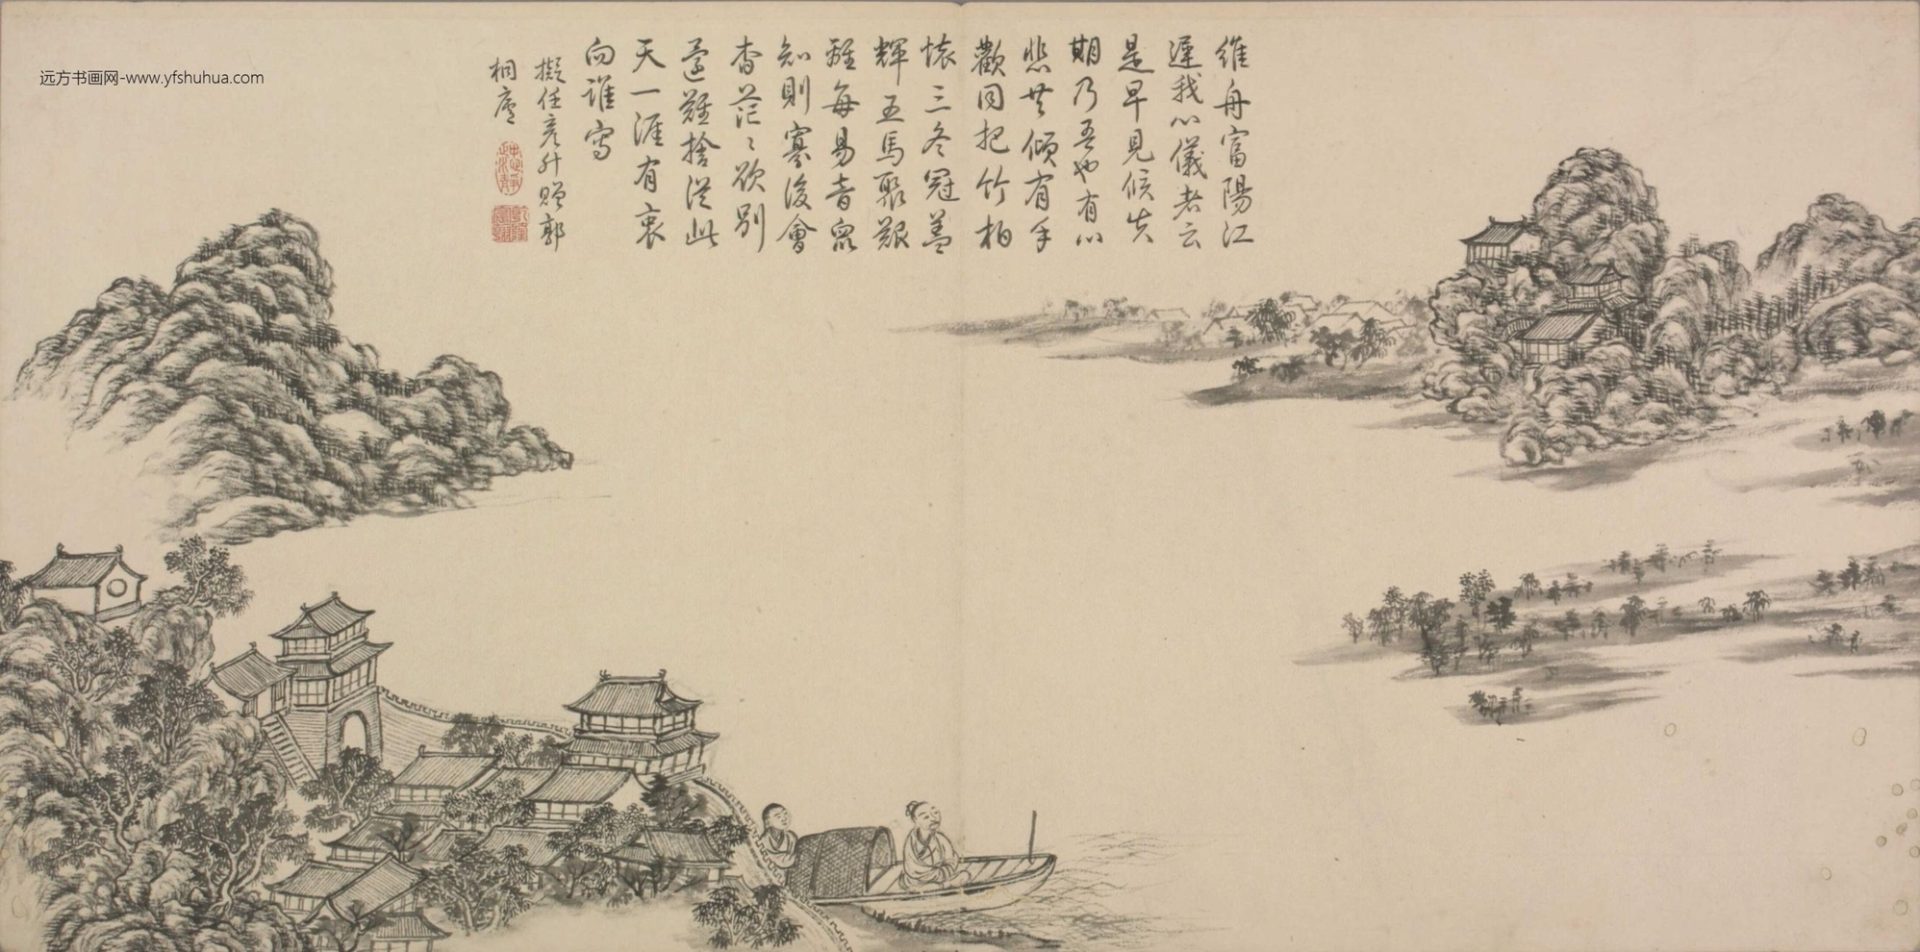 远方书画网-www.yfshuhua.com
維舟富陽江
遲我心儀者云
是早見候失
期乃吾也有心
悲共傾有手
歡同把竹柏
懷三冬冠蓋
輝五馬聚艱
離每易音眾
知則寡後會
杳茫〻欲別
還難捨從此
天一涯有衷
向誰寫
擬任彥升贈郭
桐廬